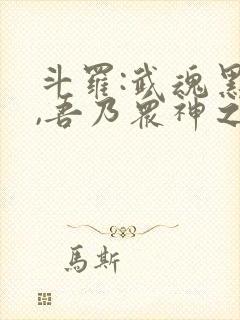 斗羅:武魂黑
,吾乃眾神之
馬斯